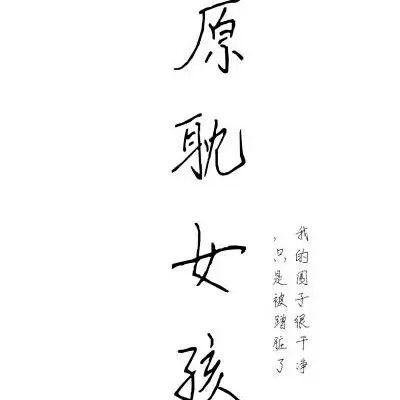 原耽女孩
我的圈子很干净
，只是被蹧脏了